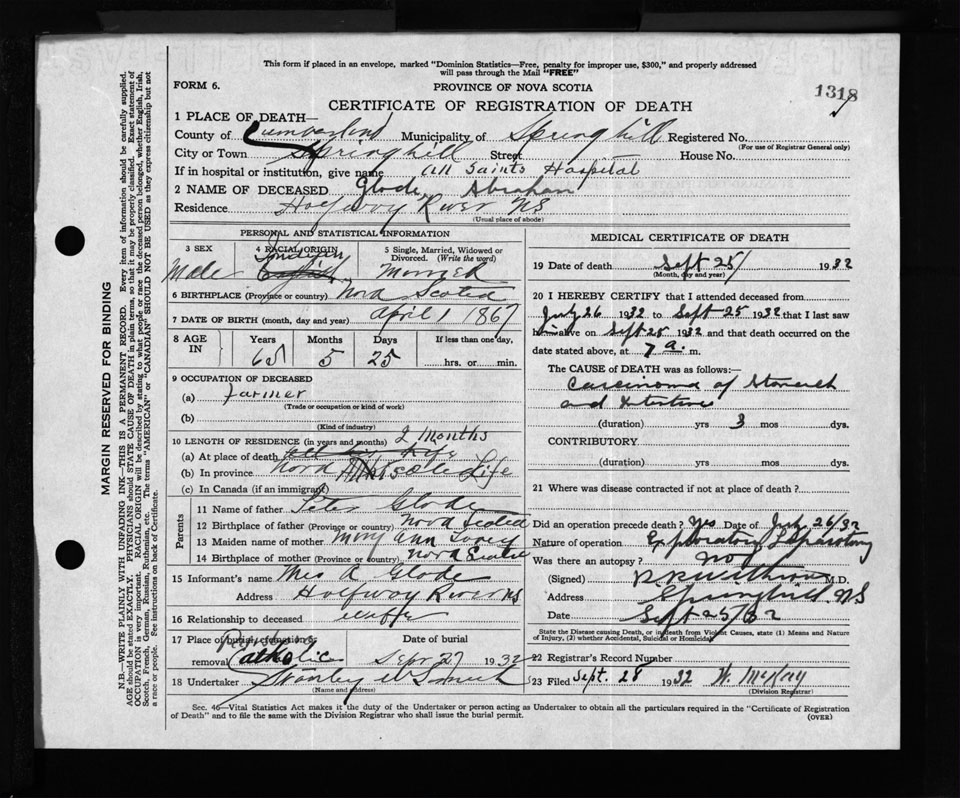 This form if placed in an envelope, marked "Dominion Statistics—Free, penalty for improper use, $300," and properly addressed
will pass through the Mail "FREE"
FORM 6.
PROVINCE OF NOVA SCOTIA
1318
CERTIFICATE OF REGISTRATION OF DEATH
1 PLACE OF DEATH—
County of Cumberland Municipality of Springhill Registered No.
(For use of Registrar General only)
City or Town Springhill Street House No.
If in hospital or institution, give name All Saints Hospital
2 NAME OF DECEASED Glode, Abraham
Residence Halfway River NS
(Usual place of abode)
PERSONAL AND STATISTICAL INFORMATION
3 SEX
Male
4 RACIAL ORIGIN
5 Single, Married, Widowed or Divorced. (Write the word)
6 BIRTHPLACE (Province or country) Nova Scotia
7 DATE OF BIRTH (month, day and year) April 1 1867
8 AGE IN
Years Months Days If less than one day,
65 5 25 hrs. or min.
9 OCCUPATION OF DECEASED
(a) farmer
(Trade or occupation or kind of work)
(b)
(Kind of industry)
10 LENGTH OF RESIDENCE (in years and months) 2 months
(a) At place of death
(b) In province Life
(c) In Canada (if an immigrant)
Parents
11 Name of father Peter Glode
12 Birthplace of father (Province or country) Nova Scotia
13 Maiden name of mother Mary Ann
14 Birthplace of mother (Province or country) Nova Scotia
15 Informant's name Mrs A. Glode
Address Halfway River NS
16 Relationship to deceased wife
17 Place of burial, cremation or removal Catholic
Date of burial
Sept 27 1932
18 Undertaker Stanley
(Name and address)
MEDICAL CERTIFICATE OF DEATH
19 Date of death Sept 25/ 1932
(Month, day and year)
20 I HEREBY CERTIFY that I attended deceased from
July 26 1932 to Sept 25 1932 that I last saw
him alive on Sept 25 1932 and that death occurred on the
date stated above, at 7 a. m.
The CAUSE OF DEATH was as follows:—
Carcinoma of Stomach
and Intestine
(duration) yrs 3 mos dys.
CONTRIBUTORY
(duration) yrs. mos. dys.
21 Where was disease contracted if not at place of death?
Did an operation precede death? Yes Date of July 26/32
Nature of operation Exploratory Laparotomy
Was there an autopsy? no
(Signed) M.D.
Address Springhill NS
Date Sept 25/32
State the Disease causing Death, or in death from Violent Causes, state (1) Means and Nature
of Injury, (2) whether Accidental, Suicidal or Homicidal.
22 Registrar's Record Number
23 Filed Sept. 28 1932 W. McKay
(Division Registrar)
Sec. 46—Vital Statistics Act makes it the duty of the Undertaker or person acting as Undertaker to obtain all the particulars required in the "Certificate of Registration
of Death" and to file the same with the Division Registrar who shall issue the burial permit.
(OVER)
MARGIN RESERVED FOR BINDING
N.B.—WRITE PLAINLY WITH UNFADING INK—THIS IS A PERMANENT RECORD. Every item of information should be carefully supplied.
AGE should be stated EXACTLY. PHYSICIANS should STATE CAUSE OF DEATH in plain terms, so that it may be properly classified. Exact statement of
OCCUPATION is very important. RACIAL ORIGIN will be described by stating to what people or race the deceased person belonged, whether English, Irish,
Scotch, French, German, Russian, Ruthenian, etc. The terms "AMERICAN" or "CANADIAN" SHOULD NOT BE USED as they express citizenship but not
a race or people. See instructions on back of Certificate.